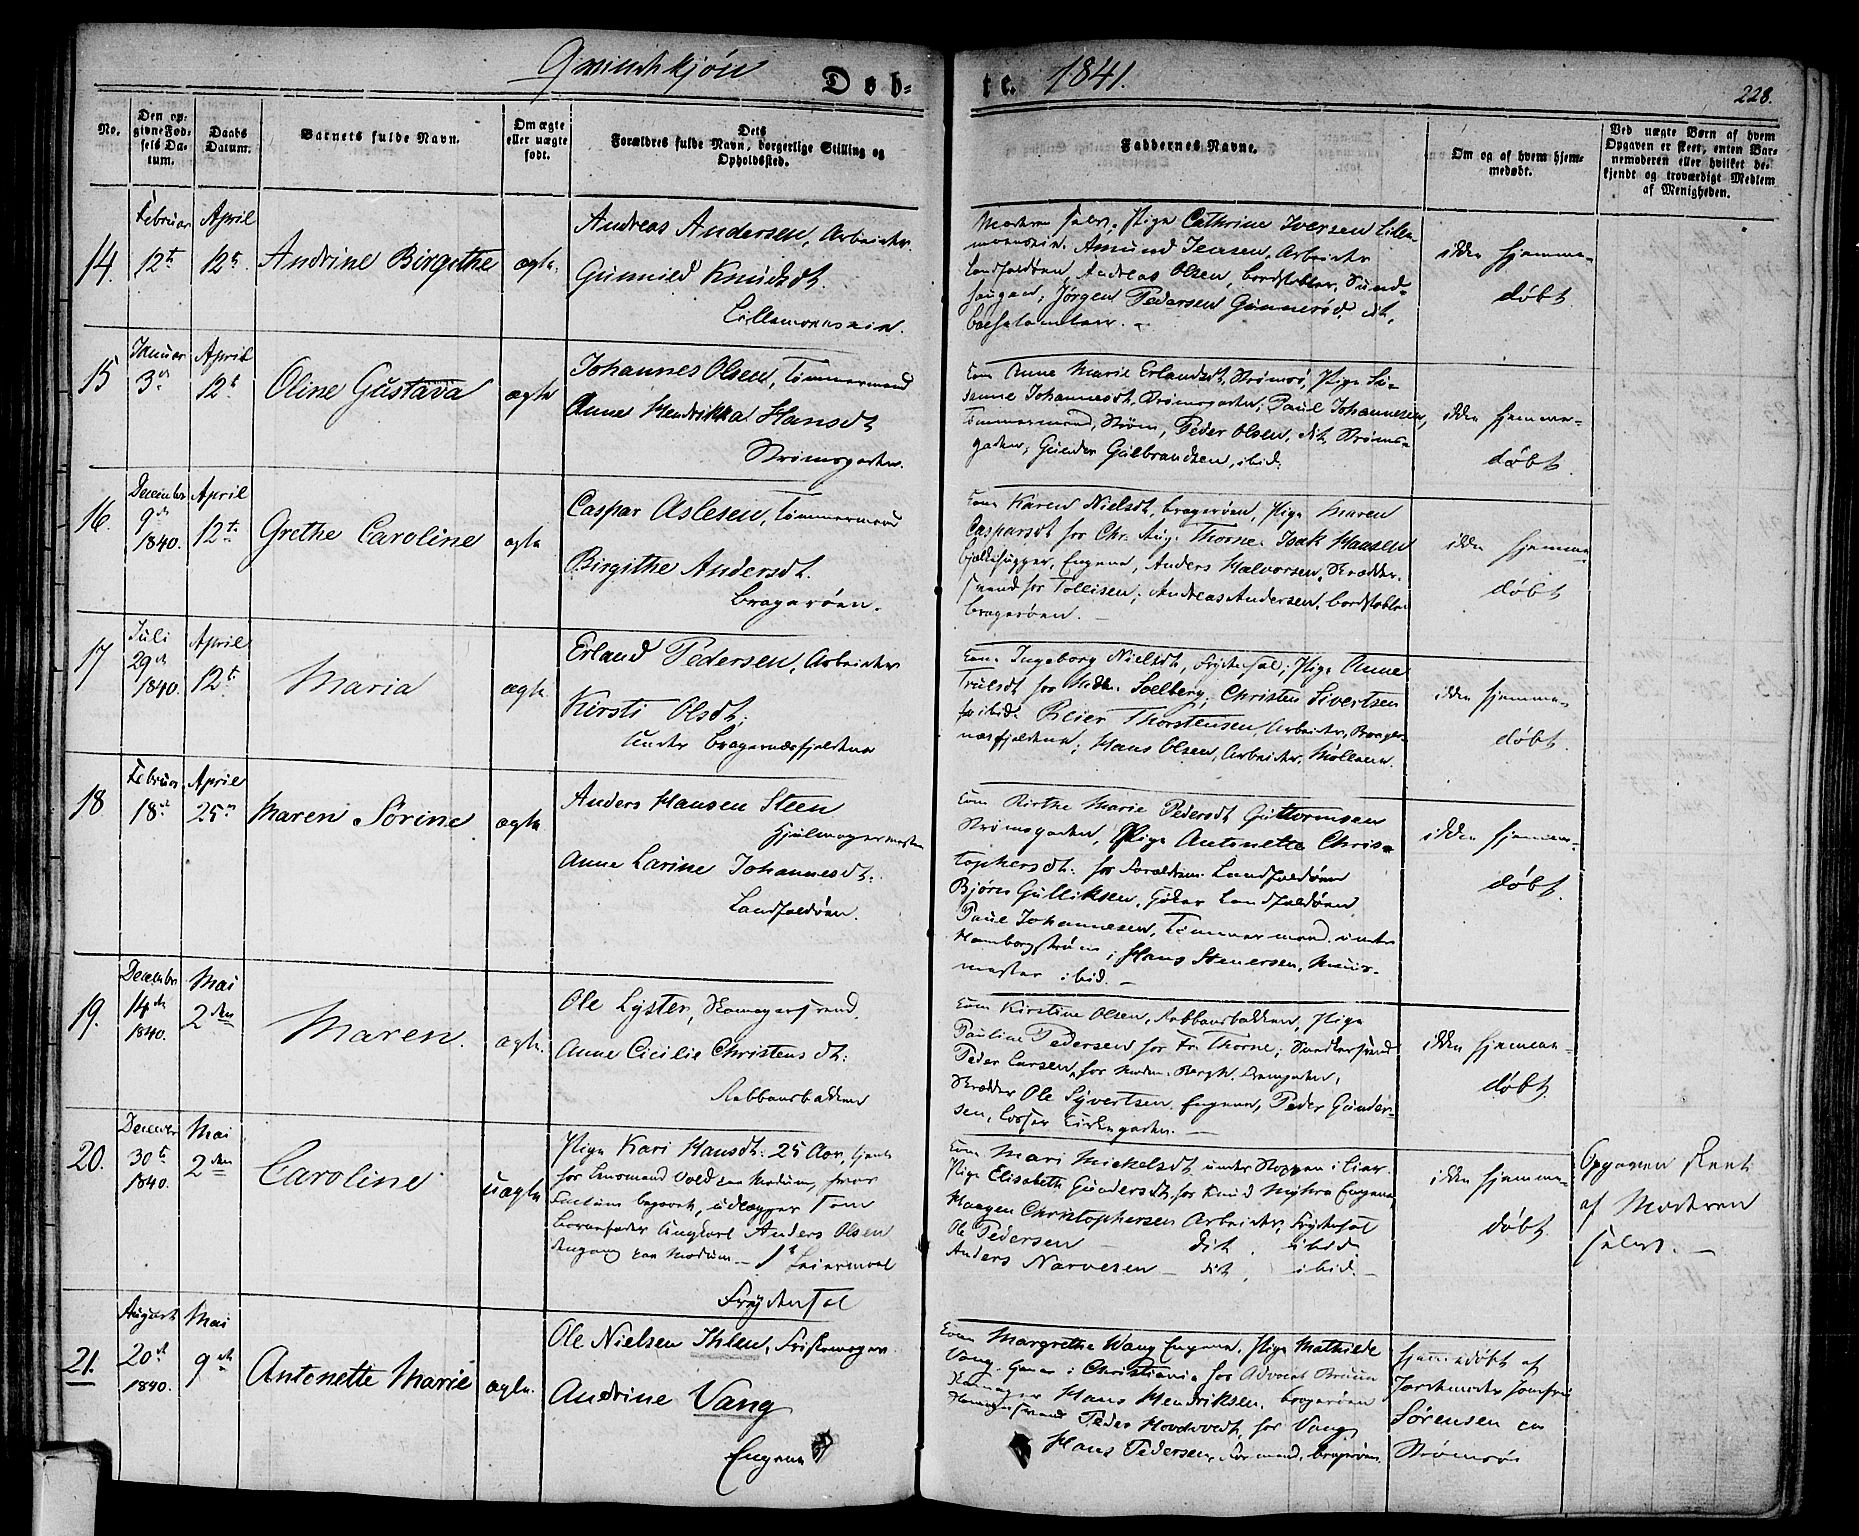 Qvindekjøn Døb- te. 1841.
228.
No.
Den op-
givne Fød-
sels Da-
tum.
Daabs
Datum.
Barnets fulde Navn.
Om ægte
eller uægte
født.
Dets
Forældres fulde Navn, borgerlige Stilling og
Opholdssted.
Faddernes Navne.
Om og af hvem hjem-
medøbt.
Ved uægte Børn af hvem
Opgaven er skeet, enten Bar-
nemoderen eller hvilket be-
kjendt og troværdigt Medlem
af Menigheden.
14. Februar 12te April 12te Andrine Birgithe ægte.
Andreas Andersen, Arbeider
Gunnild Knudsdt
Lillemoensein.
Moderen selv, Pige Cathrine Iversen Lille-
moensein. Amund Jensen, Arbeider
Landfaldøen, Andreas Olsen, Bordstabler, Sund-
haugen; Jørgen Pedersen Gunnerød, dit,
ikke hjemme-
døbt.
15 Januar 3die April 12te Oline Gustava ægte
Johannes Olsen, Tømmermand
Anne Hendrikka Hansdt
Strømsgaden.
Kone Anne Marie Erlandsdt, Strømsø, Pige Su-
sanne Johannesdt, Strømsgaden; Paul Johannesen,
Tømmermand, Strøm, Peder Olsen, dit, Strøms-
gaden; Gunder Gulbrandsen, ibid.
ikke hjemme-
døbt.
16. December 9de 1840. April 12te Grethe Caroline ægte
Caspar Aslesen, Tømmermand
Birgithe Andersdt.
Bragerøen.
Kone Karen Nielsdt, Bragerøen, Pige Maren
Caspersdt for Chr. Aug. Thorne. Isak Hansen
Bjelkehugger, Engene, Anders Halvorsen, Skrædder-
svend for Tollisen; Andreas Andersen, Bordstabler
Bragerøen.
ikke hjemme-
døbt
17 Juli 29de 1840. April 12te Maria ægte
Erland Pedersen, Arbeider
Kirsti Olsdt;
under Bragernæsfjeldene
Kone Ingeborg Nielsdt, Frydendal; Pige Anne
Trulsdt for Mad. Soelberg; Christen Sivertsen
ibid. Reier Thorstensen, Arbeider, Brager-
næsfjeldene; Hans Olsen, Arbeider, Møllene.
ikke hjemme-
døbt.
18. Februar 18de April 25de Maren Sørine ægte
Anders Hansen Steen
Hjulmagermester
Anne Larine Johannesdt.
Landfaldøen.
Kone Birthe Marie Pedersdt Guttormsen
Strømsgaden, Pige Antonette Chris-
tophersdt. for Forældrene Landfaldøen
Bjørn Gulliksen, Landfaldøen
Paul Johannesen, Tømmermand, under
Hamborgstrøm; Hans Stenersen, Muur-
mester ibid.
ikke hjemme-
døbt.
19. December 14de 1840. Mai 2den Maren. ægte.
Ole Lyster, Skomagersvend.
Anne Cicilie Christensdt:
Robbansbakken
Kone Kirstine Olsen, Robbansbakken, Pige
Pauline Pedersen for Fr. Thorne; Snedkersvend
Peder Larsen
Skrædder Ole Syvertsen. Engene, Peder Gunder-
sen, Losser Kirkegaden.
ikke hjemme-
døbt.
20. December 30te 1840. Mai 2den Caroline uægte
Pige Kari Hansdt: 25 Aar, tjente
for Lensmand Vold paa Modum, hvor
Factum begaaet, udlægger som
Barnefader Ungkarl Anders Olsen
paa Modum. – 1te Leiermaal
Frydendal
Kone Mari Mickelsdt under Stoppen i Lier.
Pige Elisabeth Gundersdt, for Knud Myhre Engene,
Haagen Christophersen Arbeider, Frydendal
Ole Pedersen – dit, ibid.
Anders Narvesen – dit, ibid. –
ikke hjemme-
døbt.
Opgaven skeet
af Moderen
selv. –
21. August 20de 1840. Mai 9de Antonette Marie ægte.
Ole Nielsen Ihlen, Feldmager.
Andrine Vang
Engene
Kone Margrethe Wang Engene, Pige Mathilde
Vang, i Christiania for Advocat Bruun
Skomager Hans Hendriksen, Bragerøen
Peder Hovdevedt, for Vang,
Hans Pedersen, Formand, Bragerøen.
hjemmedøbt af
Jordemoder Jomfru
Sørensen paa
Strømsøe